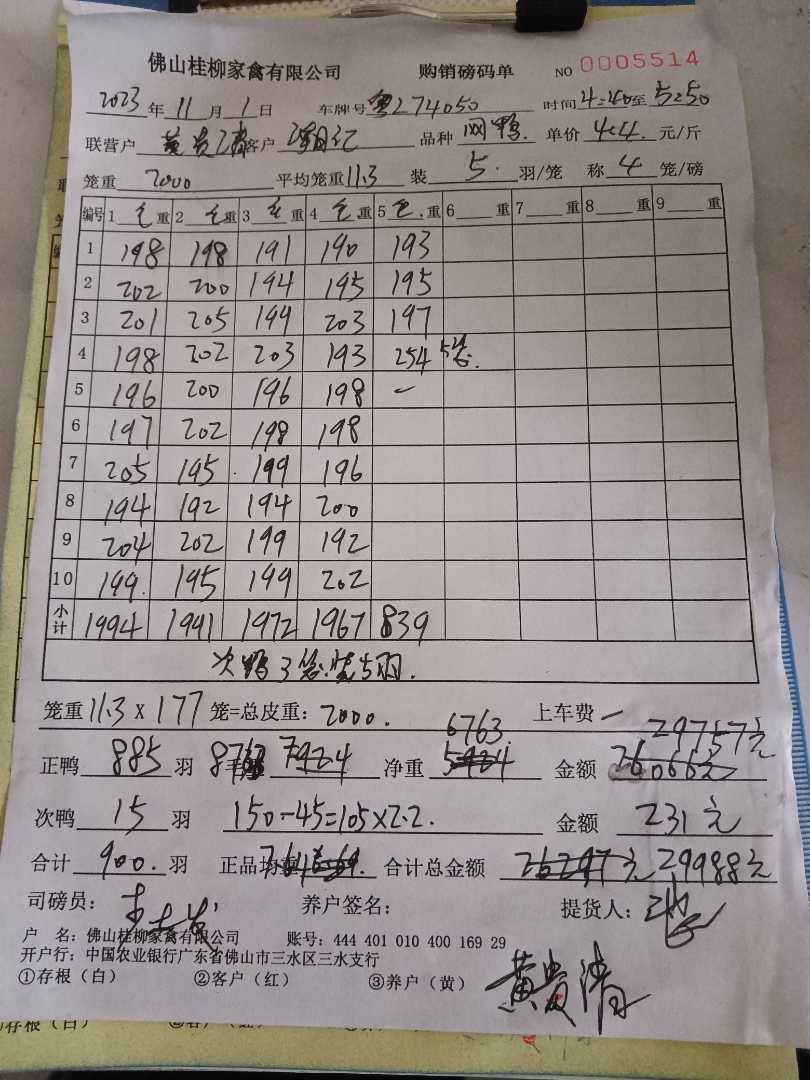 佛山桂柳家禽有限公司 购销磅码单 NO 0005514
2023年11月1日 车牌号粤Z74050 时间4:40至5:50
联营户 黄贵清 客户 品种 网鸭. 单价 4.4. 元/斤
笼重 2000 平均笼重11.3 装 5. 羽/笼 称 4 笼/磅
编号 1 毛重 2 毛重 3 毛重 4 毛重 5 毛重 6 重 7 重 8 重 9 重
1 198 198 191 190 193
2 202 200 194 195 195
3 201 205 199 203 197
4 198 202 203 193 254 5笼.
5 196 200 196 198 —
6 197 202 198 198
7 205 195 199 196
8 194 192 194 200
9 204 202 199 192
10 199 195 199 202
小计 1994 1991 1972 1967 839
次鸭3笼.装5羽.
笼重11.3×177笼=总皮重：2000. 上车费 —
正鸭 885 羽 8763 7924 净重 6763. 5924 金额 29757元 26066元
次鸭 15 羽 150-45=105×2.2. 金额 231元
合计 900. 羽 正品均重 合计总金额 26297元 29988元
司磅员： 养户签名： 提货人：
户 名：佛山桂柳家禽有限公司 账号：444 401 010 400 169 29
开户行：中国农业银行广东省佛山市三水区三水支行
①存根（白） ②客户（红） ③养户（黄） 黄贵清
①存根（白）